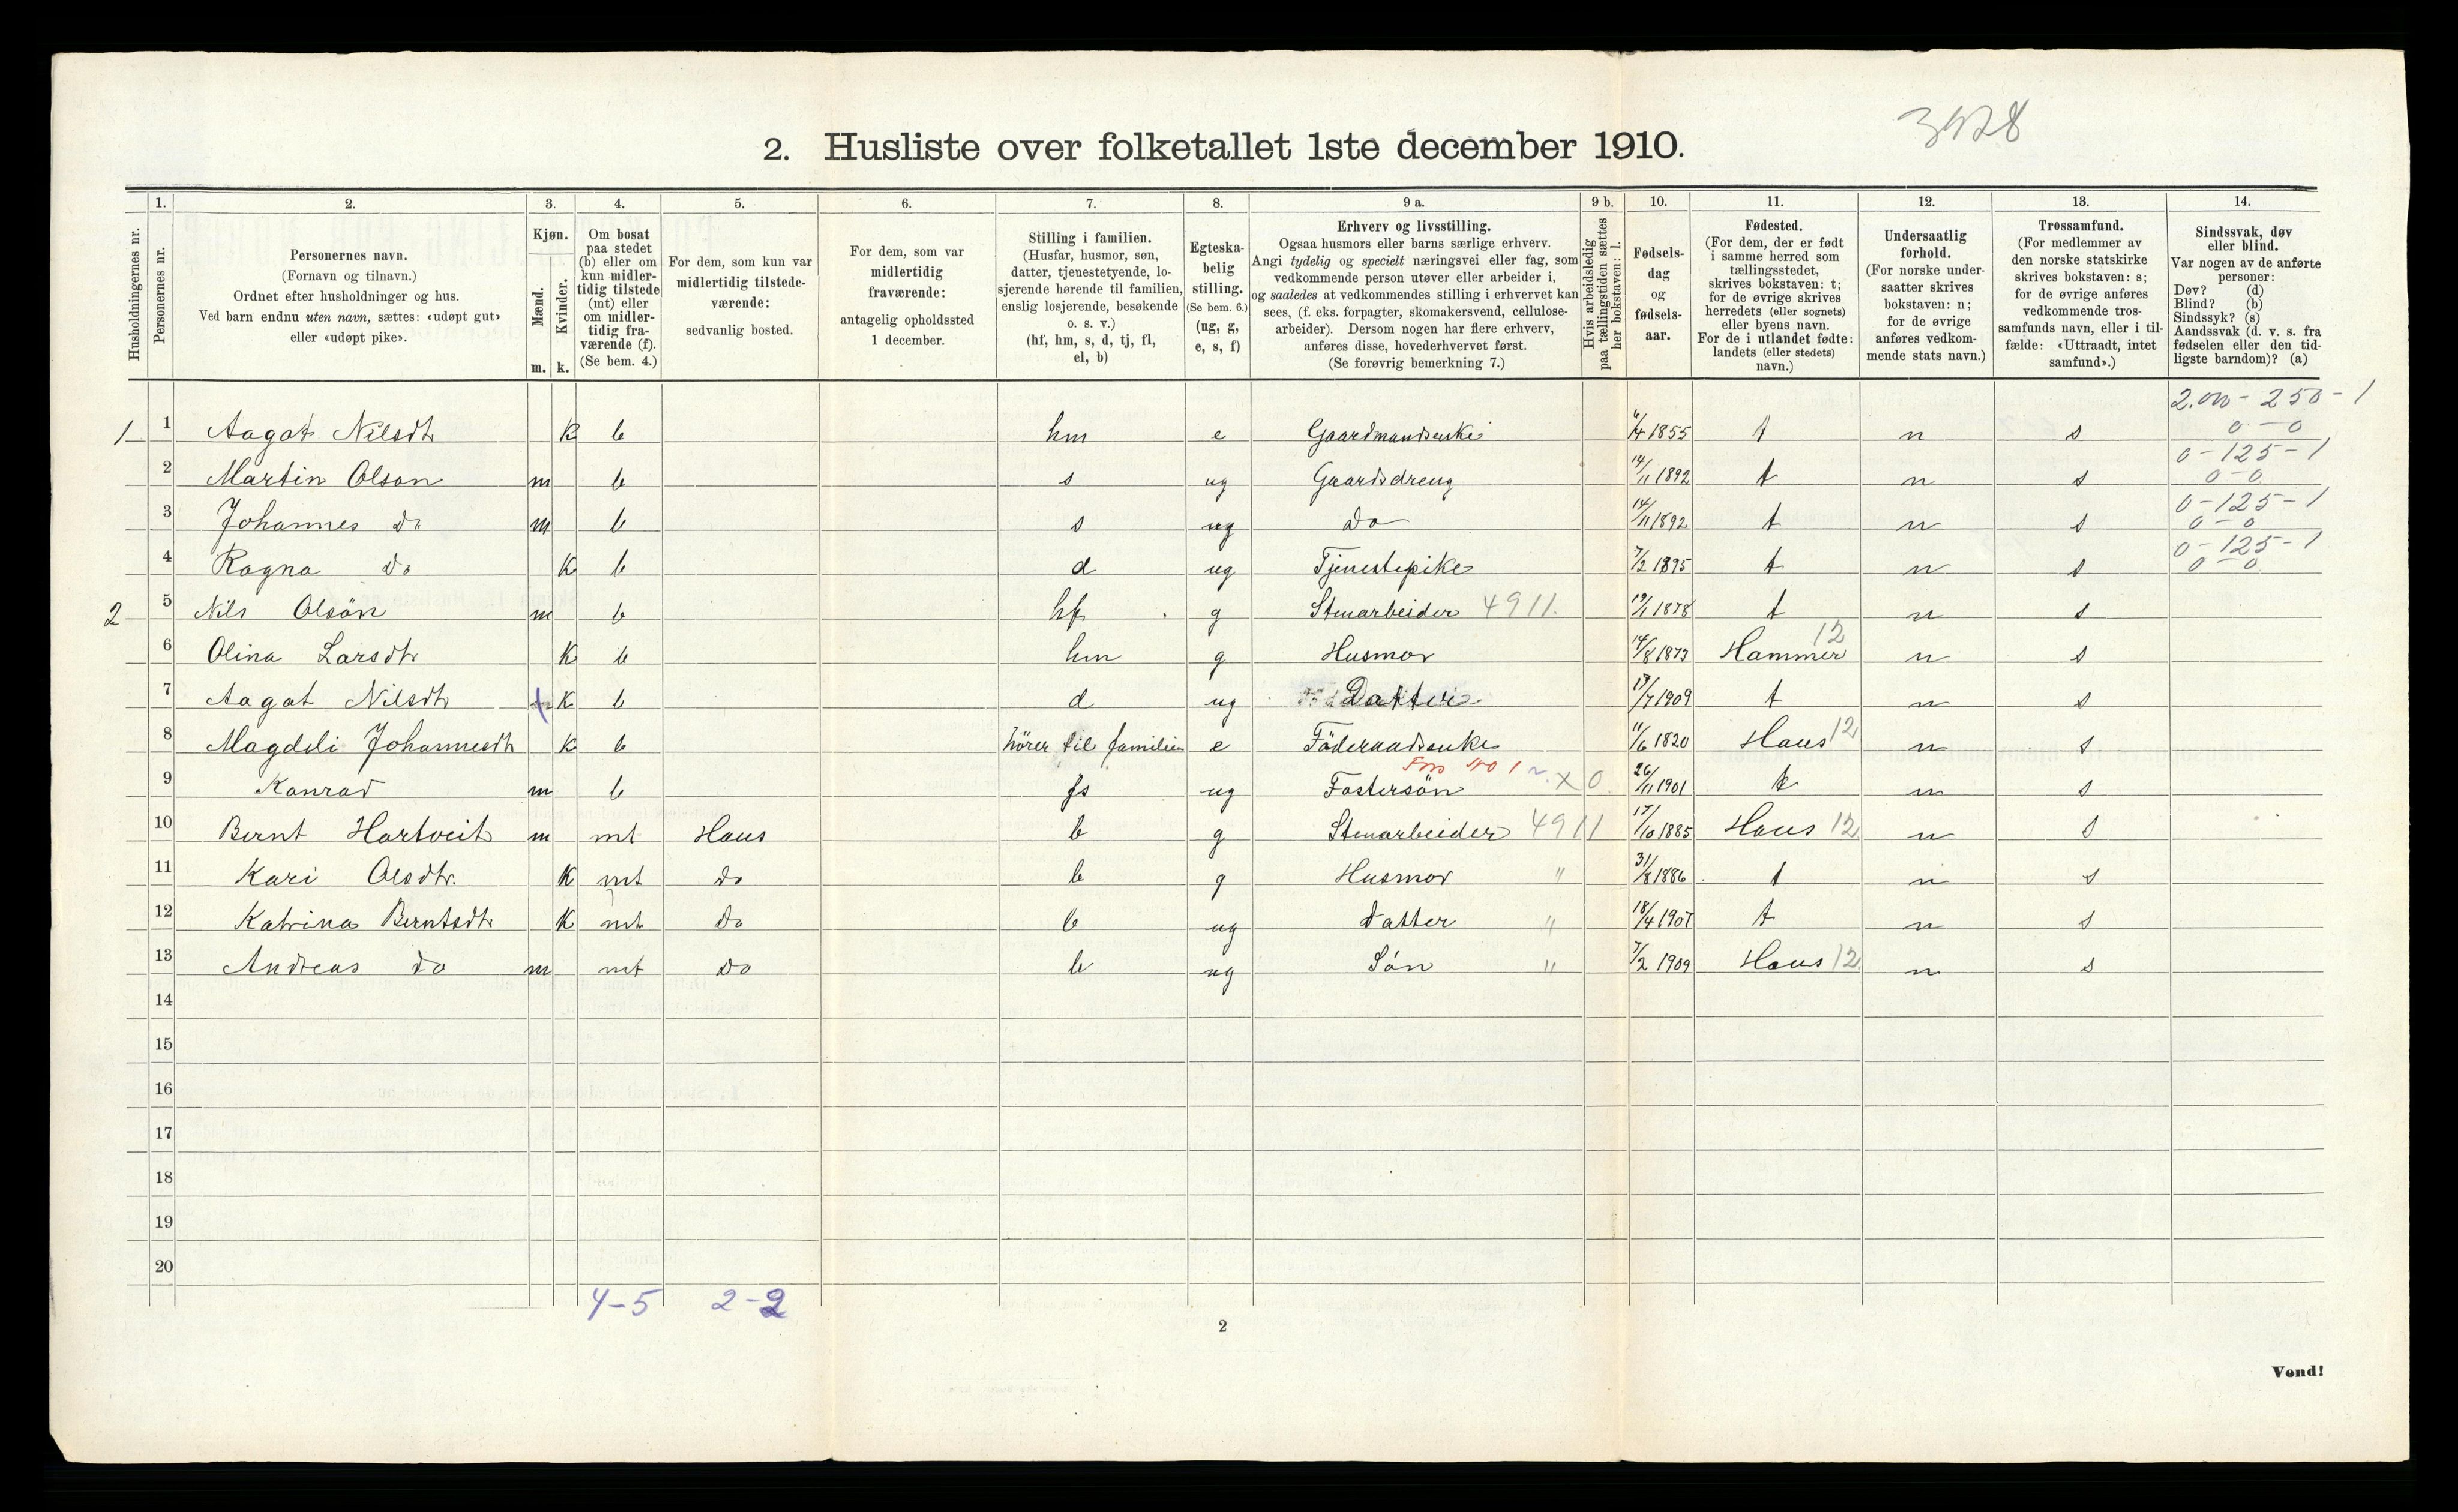 3928
2. Husliste over folketallet 1ste december 1910.
Husholdningernes nr.
1. Personernes nr.
2. Personernes navn. (Fornavn og tilnavn.) Ordnet efter husholdninger og hus. Ved barn endnu uten navn, sættes: «udøpt gut» eller «udøpt pike».
3. Kjøn. Mænd. m. Kvinder. k.
4. Om bosat paa stedet (b) eller om kun midlertidig tilstede (mt) eller om midlertidig fraværende (f). (Se bem. 4.)
5. For dem, som kun var midlertidig tilstedeværende: sedvanlig bosted.
6. For dem, som var midlertidig fraværende: antagelig opholdssted 1 december.
7. Stilling i familien. (Husfar, husmor, søn, datter, tjenestetyende, losjerende hørende til familien, enslig losjerende, besøkende o. s. v.) (hf, hm, s, d, tj, fl, el, b)
8. Egteskabelig stilling. (Se bem. 6.) (ug, g, e, s, f)
9 a. Erhverv og livsstilling. Ogsaa husmors eller barns særlige erhverv. Angi tydelig og specielt næringsvei eller fag, som vedkommende person utøver eller arbeider i, og saaledes at vedkommendes stilling i erhvervet kan sees, (f. eks. forpagter, skomakersvend, cellulosearbeider). Dersom nogen har flere erhverv, anføres disse, hovederhvervet først. (Se forøvrig bemerkning 7.)
9 b. Hvis arbeidsledig paa tællingstiden sættes her bokstaven: l.
10. Fødselsdag og fødselsaar.
11. Fødested. (For dem, der er født i samme herred som tællingsstedet, skrives bokstaven: t; for de øvrige skrives herredets (eller sognets) eller byens navn. For de i utlandet fødte: landets (eller stedets) navn.)
12. Undersaatlig forhold. (For norske undersaatter skrives bokstaven: n; for de øvrige anføres vedkommende stats navn.)
13. Trossamfund. (For medlemmer av den norske statskirke skrives bokstaven: s; for de øvrige anføres vedkommende trossamfunds navn, eller i tilfælde: «Uttraadt, intet samfund».)
14. Sindssvak, døv eller blind. Var nogen av de anførte personer: Døv? (d) Blind? (b) Sindssyk? (s) Aandssvak (d. v. s. fra fødselen eller den tidligste barndom)? (a)
2.00 - 250 - 1
1 1 Aagot Nilsdtr k b hm e Gaardmandsenke 6/4 1855 t n s 0 - 0
0 - 125 - 1
2 Martin Olson m b s ug Gaardsdreng 14/11 1892 t n s 0 - 0
0 - 125 - 1
3 Johannes do m b s ug do 14/11 1892 t n s 0 - 0
0 - 125 - 1
4 Ragna do k b d ug Tjenestepike 7/2 1895 t n s 0 - 0
2 5 Nils Olsön m b hf g Stenarbeider 4911. 19/1 1878 t n s
6 Olina Larsdtr k b hm g Husmor 14/8 1873 Hammer 12 n s
7 Aagot Nilsdtr k b d ug Datter 19/7 1909 t n s
8 Magdeli Johannesdtr k b hører til familien e Föderaadsenke 11/6 1820 Haus 12 n s
9 Konrad m b fs ug Fostersön x 0 26/11 1901 t n s
10 Bernt Hartveit m mt Haus b g Stenarbeider 4911 17/10 1885 Haus 12 n s
11 Kari Olsdtr. k mt do b g Husmor " 31/8 1886 t n s
12 Katrina Berntsdtr k mt do b ug Datter " 18/4 1907 t n s
13 Andreas do m mt do b ug Søn " 7/2 1909 Haus 12 n s
14
15
16
17
18
19
20
4-5 2-2
2
Vend!